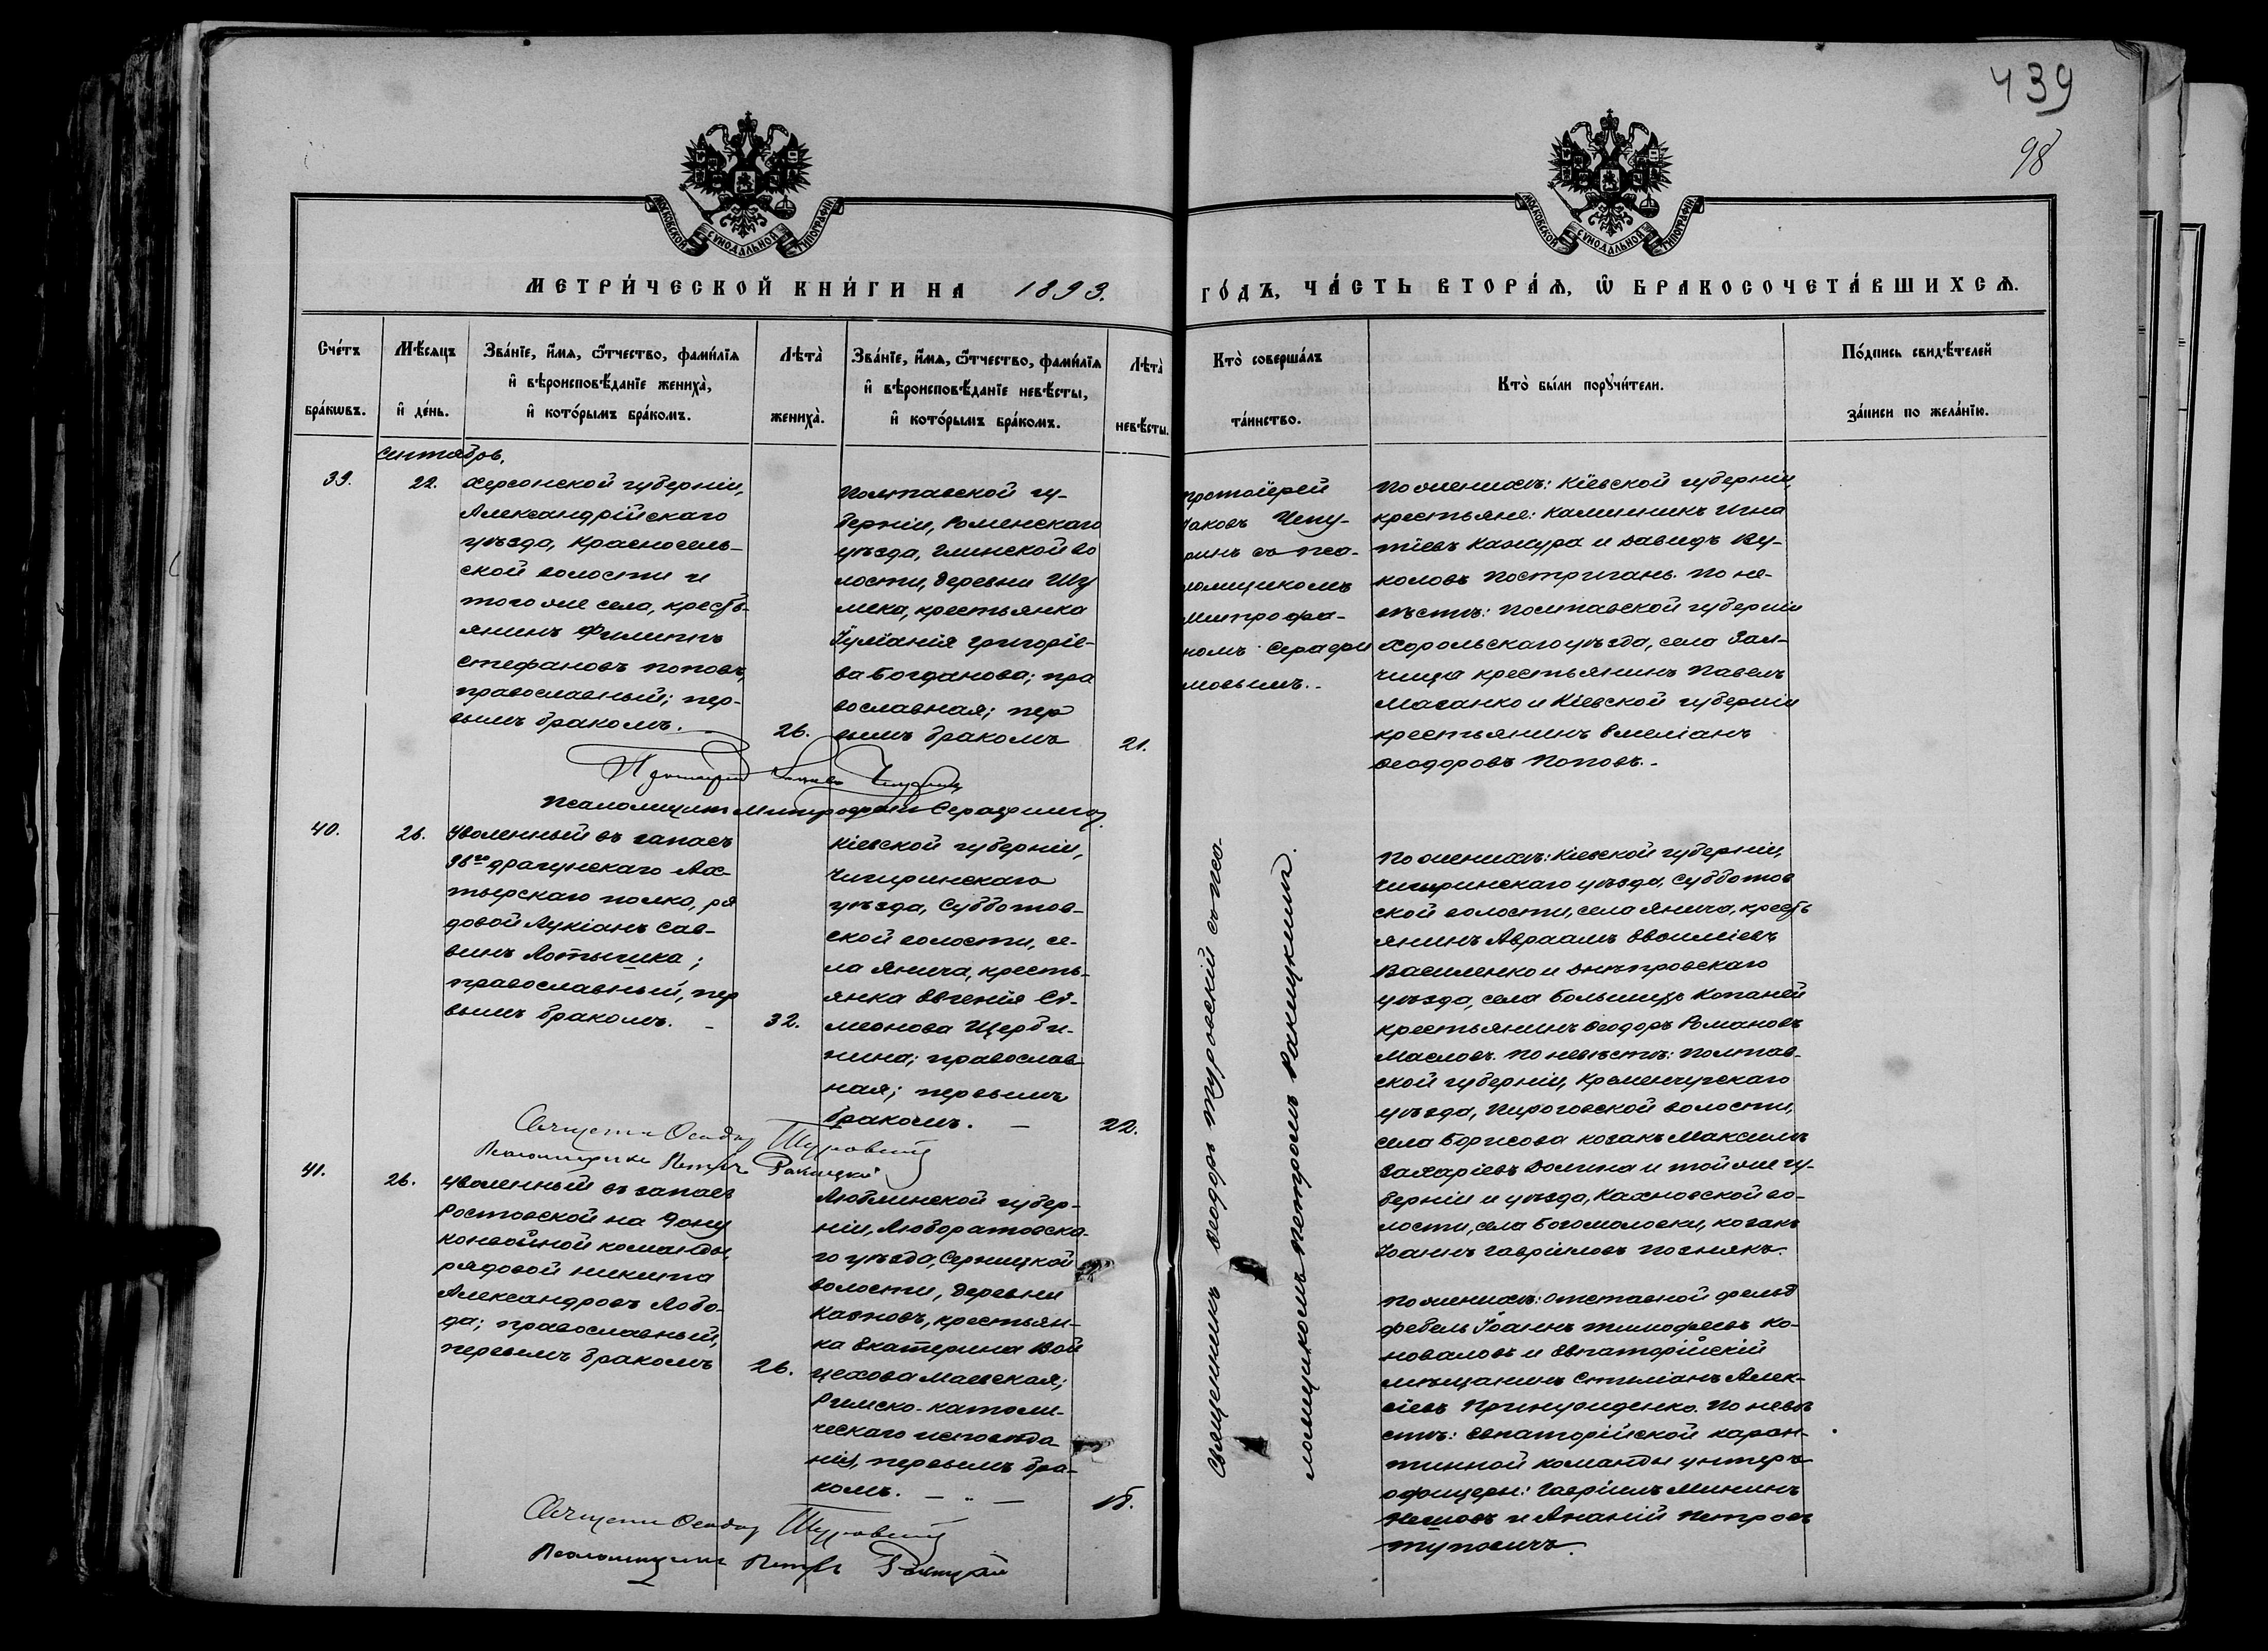 439
98
МОСКОВСКОЙ СѴНОДАЛЬНОЙ ТИПОГРАФІИ
МОСКОВСКОЙ СѴНОДАЛЬНОЙ ТИПОГРАФІИ
МЕТРИ́ЧЕСКОЙ КНИ́ГИ НА 1893.
ГО́ДЪ, ЧА́СТЬ ВТОРА́Ѧ, Ѡ БРАКОСОЧЕТА́ВШИХСѦ.
Сче́тъ бра́кωвъ.
Мѣ́сяцъ и де́нь.
Зва́нїе, и́мѧ, ѻ́тчество, фами́лїѧ
и вѣроисповѣ́данїе жениха̀,
и кото́рымъ бра́комъ.
Лѣта̀ жениха̀.
Зва́нїе, и́мѧ, ѻ́тчество, фами́лїѧ
и вѣроисповѣ́данїе невѣ́сты,
и кото́рымъ бра́комъ.
Лѣта̀ невѣ́сты.
Кто̀ соверша́лъ
та́инство.
Кто̀ бы́ли порꙋчи́тели.
По́дпись свидѣ́телей
за́писи по жела́нїю.
Сентябрь.
39.
22.
Херсонской губерніи,
Александрійскаго
уѣзда, Красносель-
ской волости и
того же села, кресть-
янинъ Филиппъ
Стефановъ Поповъ,
православный; пер-
вымъ бракомъ.
26.
Полтавской гу-
берніи, Роменскаго
уѣзда, Глинской во
лости, деревни Шу
мска, крестьянка
Іуліанія Григоріе-
ва Богданова; пра
вославная; пер
вымъ бракомъ
21.
Протоіерей
Іаковъ Чепу-
ринъ съ пса-
ломщикомъ
Митрофа-
номъ Серафи
мовымъ.
По женихѣ: Кіевской губерніи,
крестьяне: Калинникъ Игна
тіевъ Кажура и Давидъ Ву-
коловъ Постригань. По не-
вѣстѣ: Полтавской губерніи
Хорольскаго уѣзда, села Зал-
чища крестьянинъ Павелъ
Маганко и Кіевской губерніи
крестьянинъ Емеліанъ
Ѳеодоровъ Поповъ.
Протоіерей Іаковъ Чепуринъ
Псаломщикъ Митрофанъ Серафимов
40.
26.
Уволенный въ запасъ
36го драгунскаго Ах-
тырскаго полка, ря
довой Лукіанъ Сав-
винъ Лотышка;
православный, пер
вымъ бракомъ.
32.
Кіевской губерніи,
Чигиринскаго
уѣзда, Субботов-
ской волости, се-
ла Янича, кресть-
янка Евгенія Сѵ-
меонова Щерби-
нина; православ
ная; первымъ
бракомъ.
22.
Священникъ Ѳеодоръ Туровскій съ пса-
ломщикомъ Петромъ Ракицкимъ.
По женихѣ: Кіевской губерніи,
Чигиринскаго уѣзда, Субботов
ской волости, села Янича, кресть
янинъ Авраамъ Евѳиміевъ
Василенко и Днѣпровскаго
уѣзда, села Большихъ Копаней
крестьянинъ Ѳеодоръ Романовъ
Масловъ. По невѣстѣ: Полтав-
ской губерніи, Кременчугскаго
уѣзда, Пироговской волости,
села Борисова козакъ Максимъ
Захаріевъ Долина и той же гу-
берніи и уѣзда, Кахновской во-
лости, села Богомоловки, козакъ
Іоаннъ Гавріиловъ Познякъ.
Священникъ Ѳеодоръ Туровскій
Псаломщикъ Петръ Ракицкій
41.
26.
Уволенный въ запасъ
Ростовской на Дону
конвойной команды,
рядовой Никита
Александровъ Лобо-
да; православный,
первымъ бракомъ
26.
Люблинской губер-
ніи, Люборатовска-
го уѣзда, Серницкой
волости, деревни
Кавновъ, крестьян-
ка Екатерина Вой
цехова Маевская;
Римско-католи-
ческаго исповѣда
нія, первымъ бра-
комъ.
18.
По женихѣ: отставной фельд
фебель Іоаннъ Тимоѳеевъ Ко-
новаловъ и Евпаторійскій
мѣщанинъ Стиліанъ Алек-
сіевъ Принужиденко. По невѣ
стѣ: Евпаторійской каран-
тинной команды унтеръ-
офицеры: Гавріилъ Мининъ
Нешовъ и Ананій Петровъ
Туповичъ.
Священникъ Ѳеодоръ Туровскій
Псаломщикъ Петръ Ракицкій